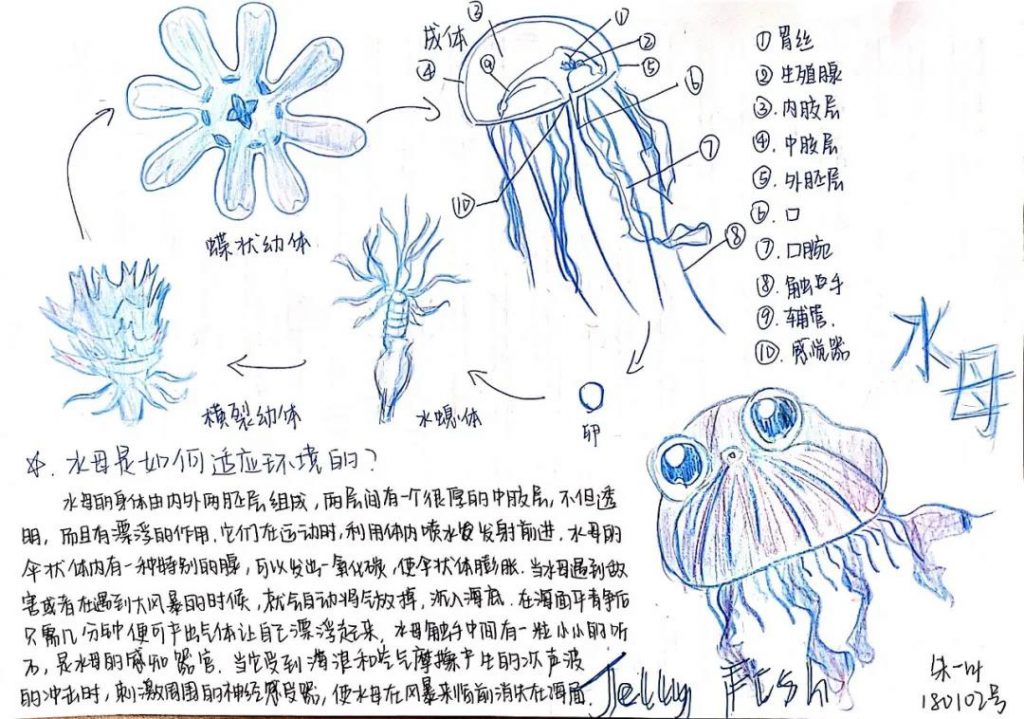 成体
③
①
②
④
⑨
⑤
⑥
⑦
⑩
⑧
①胃丝
②生殖腺
③.内胶层
④.中胶层
⑤.外胚层
⑥.口
⑦.口腕
⑧.触手
⑨.辅管.
⑩.感觉器
蝶状幼体
横裂幼体
水螅体
卵
水母
☆.水母是如何适应环境的?
水母的身体由内外两胚层组成,两层间有一个很厚的中胶层,不但透
明,而且有漂浮的作用.它们在运动时,利用体内喷水发射前进.水母的
伞状体内有一种特别的腺,可以发出一氧化碳,使伞状体膨胀.当水母遇到敌
害或者在遇到大风暴的时候,就会自动将气放掉,沉入海底.在海面平静后
只需几分钟便可产出气体让自己漂浮起来.水母触手中间有一粒小小的听
石,是水母的感知器官.当它受到海浪和空气摩擦产生的次声波
的冲击时,刺激周围的神经感受器,使水母在风暴来临前消失在海面.
Jelly Fish
朱一叶
180102号